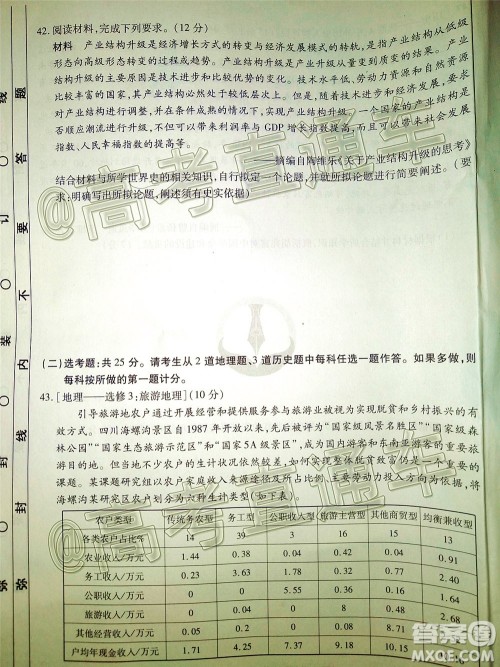 42. 阅读材料,完成下列要求。(12 分)
材料 产业结构升级是经济增长方式的转变与经济发展模式的转轨,是指产业结构从低级
形态向高级形态转变的过程或趋势。产业结构升级是产业升级从量变到质变的结果。产业
结构升级的主要原因是技术进步和比较优势的变化。技术水平低、劳动力资源和自然资源
比较丰富的国家,其产业结构必然处于较低层次上。但是,随着技术进步和资本积累,可以
对产业结构进行调整,并在条件成熟的情况下,实现产业结构升级。一个国家的产业结构是
否顺应潮流进行升级,不仅可以带来利润率与 GDP 增长指数的提高,也会带来社会发展
指数、人民幸福指数的提高等。
——摘编自陶维乐《关于产业结构升级的思考》
结合材料与所学世界史的相关知识,自行拟定一个论题,并就所拟论题进行简要阐述。(要
求:明确写出所拟论题,阐述须有史实依据)
(二)选考题:共 25 分。请考生从 2 道地理题、3 道历史题中每科任选一题作答。如果多做,则
每科按所做的第一题计分。
43. [地理——选修 3:旅游地理](10 分)
引导旅游地农户通过开展经营和提供服务参与旅游业被视为实现脱贫和乡村振兴的有
效方式。四川海螺沟景区自 1987 年开放以来,先后被评为“国家级风景名胜区”“国家级森
林公园”“国家生态旅游示范区”和“国家 5A 级景区”,成为国内外游客
旅游目的地。但景区内农户的生计
的。某课题研究组以农户家庭收入来源途径及长期劳动力投入方向为标准,将
海螺沟某研究区农户划分为六种生计类型(如下表)。
农户类型 传统务农型 务工型 公职收入型 旅游主营型 其他商贸型 均衡兼收型
各类农户占比% 14 39 3 16 15 13
农业收入/万元 1.44 0.38 0.23 0.4 0.38 0.91
务工收入/万元 0.23 3.63 1.78 0.32 0.77 2.40
公职收入/万元 0 0 5.55 0.36 0.16 1.64
旅游收入/万元 0 0.04 0 8 0.51 2.68
其他经营收入/万元 0.05 0.2 0 0.71 8.33
户均年现金收入/万元 1.71 4.25 7.37 9.18 10.15
线
订
装
封
弥
题
答
要
不
内
线
封
弥
@高考直通车
@高考直通车
答案圈
MXQE.COM